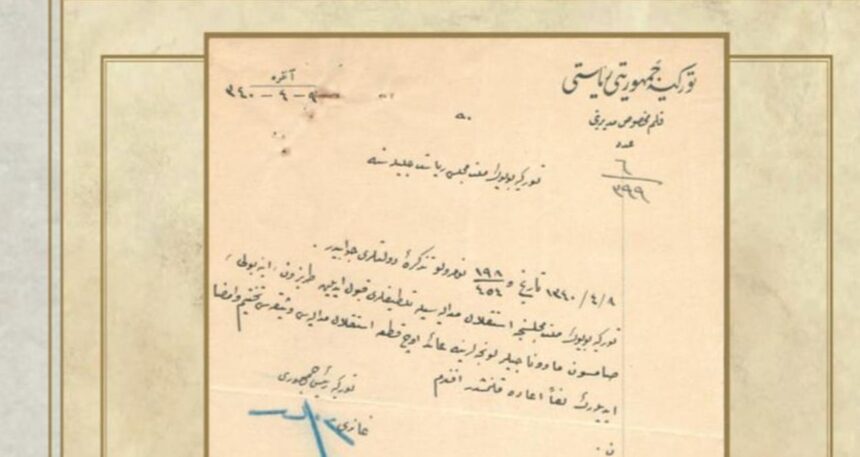 توركيه جمهوريتى رياستى
قلم مخصوص مديريتى
عدد
٦
٣٩٩
آنقره
٩ - ٤ - ٣٤٠
توركيه بويوك ملت مجلسى رياست جليله سنه
٨ / ٤ / ١٣٤٠ تاريخ و ١٩٨ / ٤٥٤ نومرولو تذكرۀ دولتلرى جوابيدر .
توركيه بويوك ملت مجلسنجه استقلال مداليه سيله تلطيفلرى قبول ايديلن طربزون ، اينه بولى ،
صامسون ماوونا جيلر لونجه لرينه عائد اوچ قطعه استقلال مداليه سى وثيقه سى تختيم وامضا
ايديلهرك لفاً اعاده قلنمشدر افندم
توركيه رئيس جمهورى
غازى